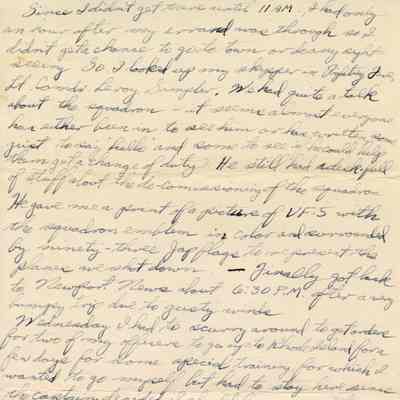 Since I didn't get there until 11 A.M., I had only
an hour after my errand was through so I
didn't get a chance to go to town or do any sight
seeing. So, I looked up my skipper in Fighting Five,
Lt. Comdr. Leroy Simpler. We had quite a talk
about the squadron - it seems almost everyone
has either been in to see him or has written, some
just to say hello and some to see if he could help
them get a change of duty. He still had a desk full
of stuff about the de-comissioning of the squadron.
He gave me a print of a picture of VF-5 with
the squadron emblem in color and surrounded
by ninety-three Jap flags to represent the
planes we shot down. — Finally got back
to Newport News about 6:30 P.M. after a very
bumpy trip due to gusty winds.
Wednesday I had to scurry around to get orders
for two of my officers to go up to Rhode Island for a
few days for some special training for which I
wanted to go myself but had to stay here since
the captain